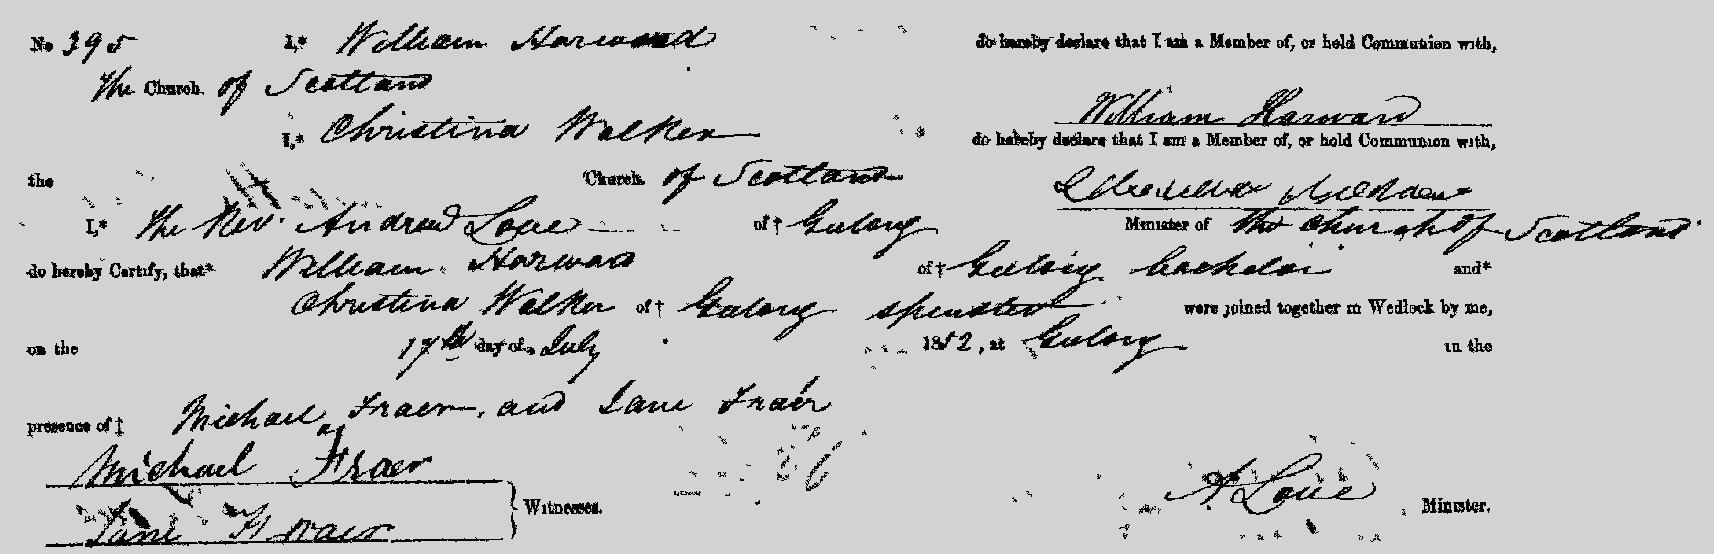 No 395 I,* William Harwood do hereby declare that I am a Member of, or hold Communion with,
the Church of Scotland
William Harwood
I,* Christina Walker do hereby declare that I am a Member of, or hold Communion with,
the Church of Scotland
Christina Walker
I,* The Rev. Andrew Love of† Geelong Minister of the Church of Scotland
do hereby Certify, that* William Harwood of† Geelong bachelor and*
Christina Walker of† Geelong spinster were joined together in Wedlock by me,
on the 17th day of July 1852, at Geelong in the
presence of‡ Michael Fraer and Jane Fraer
Michael Fraer
Jane Fraer
Witnesses.
A. Love Minister.